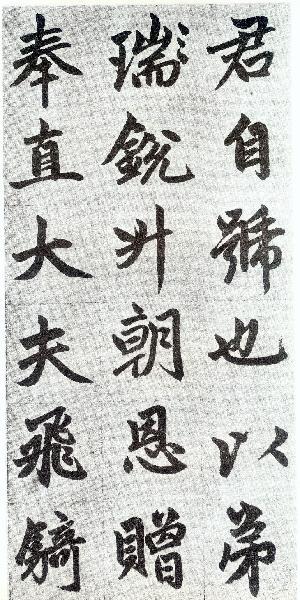 君自號也以弟
瑞銳升朝恩贈
奉直大夫飛騎